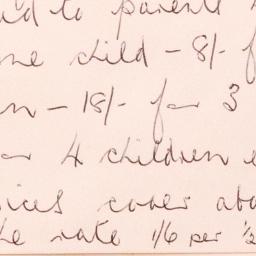 to parents
child - 8/- f
- 18/- for 3
4 children e
ices cover abo
he rate 1/6 per 1/2